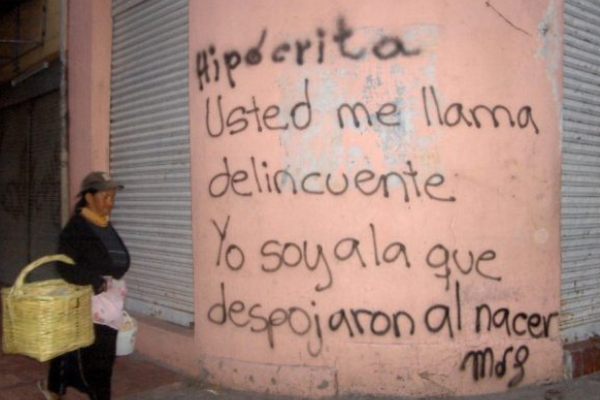 Hipócrita
Usted me llama
delincuente
Yo soy a la que
despojaron al nacer